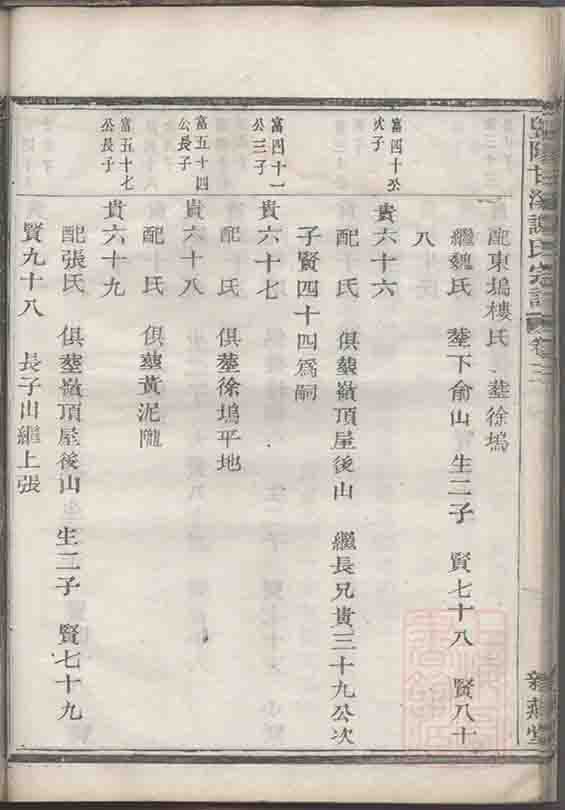 暨陽甘溪謝氏宗譜 卷二
配東塢樓氏 塟徐塢
繼魏氏 塟下俞山 生二子 賢七十八 賢八十
八
富四十公
次子
貴六十六
配 氏 俱塟嶺頂屋後山 繼長兄貴三十九公次
子賢四十四爲嗣
富四十一
公三子
貴六十七
配 氏 俱塟徐塢平地
富五十四
公長子
貴六十八
配 氏 俱塟黃泥隴
富五十七
公長子
貴六十九
配張氏 俱塟嶺頂屋後山 生二子 賢七十九
賢九十八 長子山繼上張